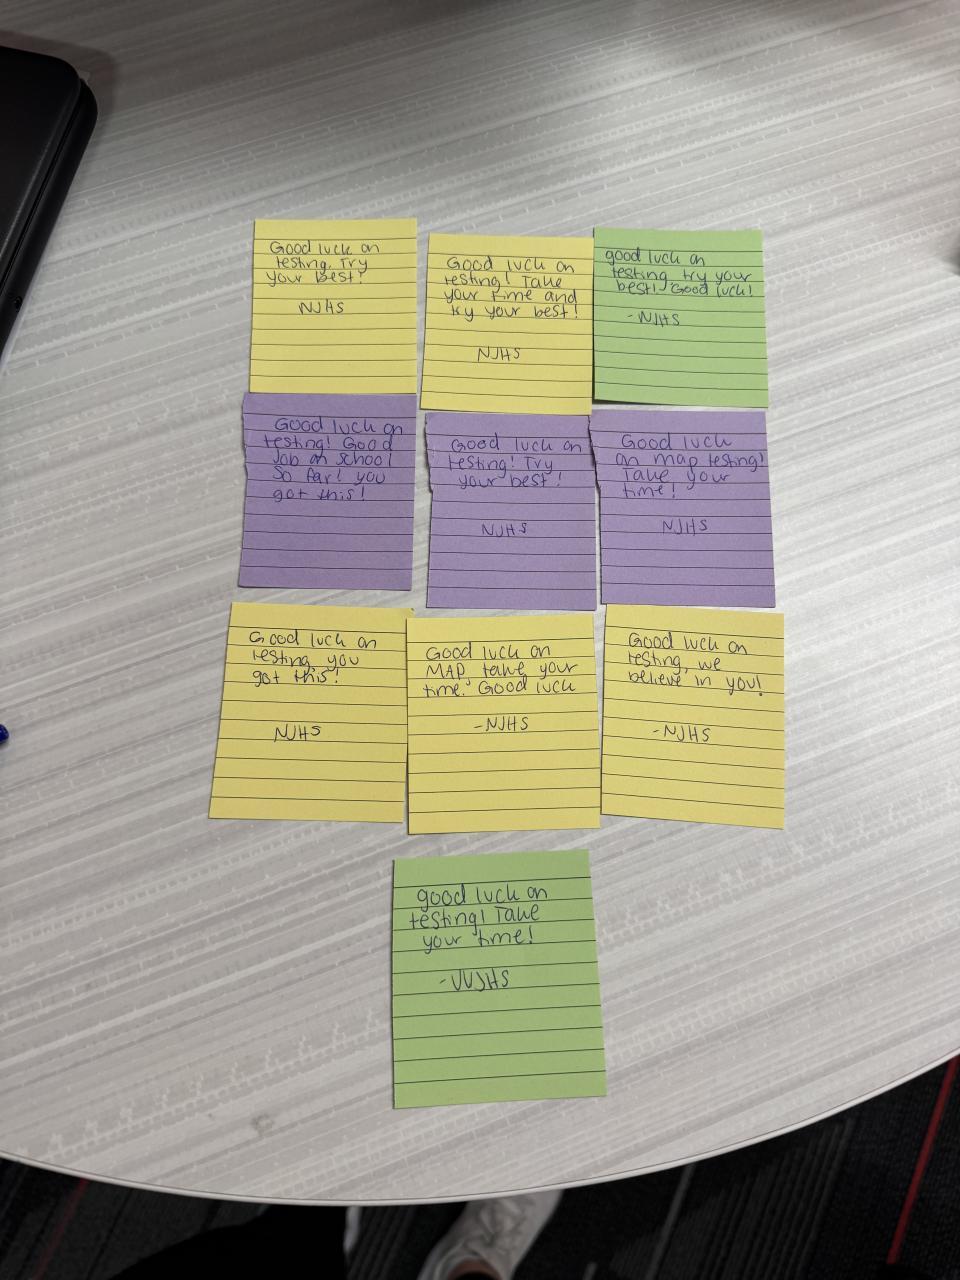 Good luck on
testing. Try
your best!
NJHS
Good luck on
testing! Take
your time and
try your best!
NJHS
good luck on
testing try your
best! Good luck!
-NJHS
Good luck on
testing! Good
Job on school
So far! you
got this!
Good luck on
testing! Try
your best!
NJHS
Good luck
on map testing!
Take your
time!
NJHS
Good luck on
testing you
got this!
NJHS
Good luck on
MAP, take your
time. Good luck
-NJHS
Good luck on
testing, we
believe in you!
-NJHS
good luck on
testing! Take
your time!